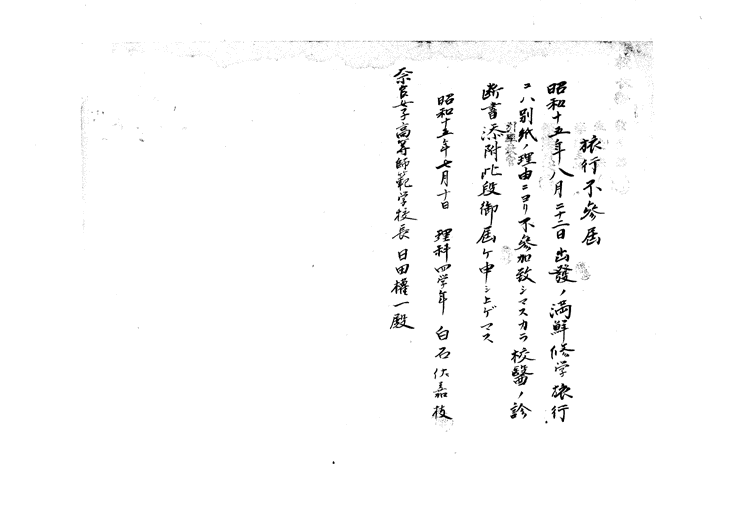 旅行不參届
昭和十五年八月二十二日出發ノ満鮮修学旅行
ニハ別紙ノ理由ニヨリ不參加致シマスカラ校醫ノ診
断書添附此段御届ケ申シ上ゲマス
昭和十五年七月十日 理科四学年 白石 嘉枝
奈良女子高等師範学校長 日田權一殿